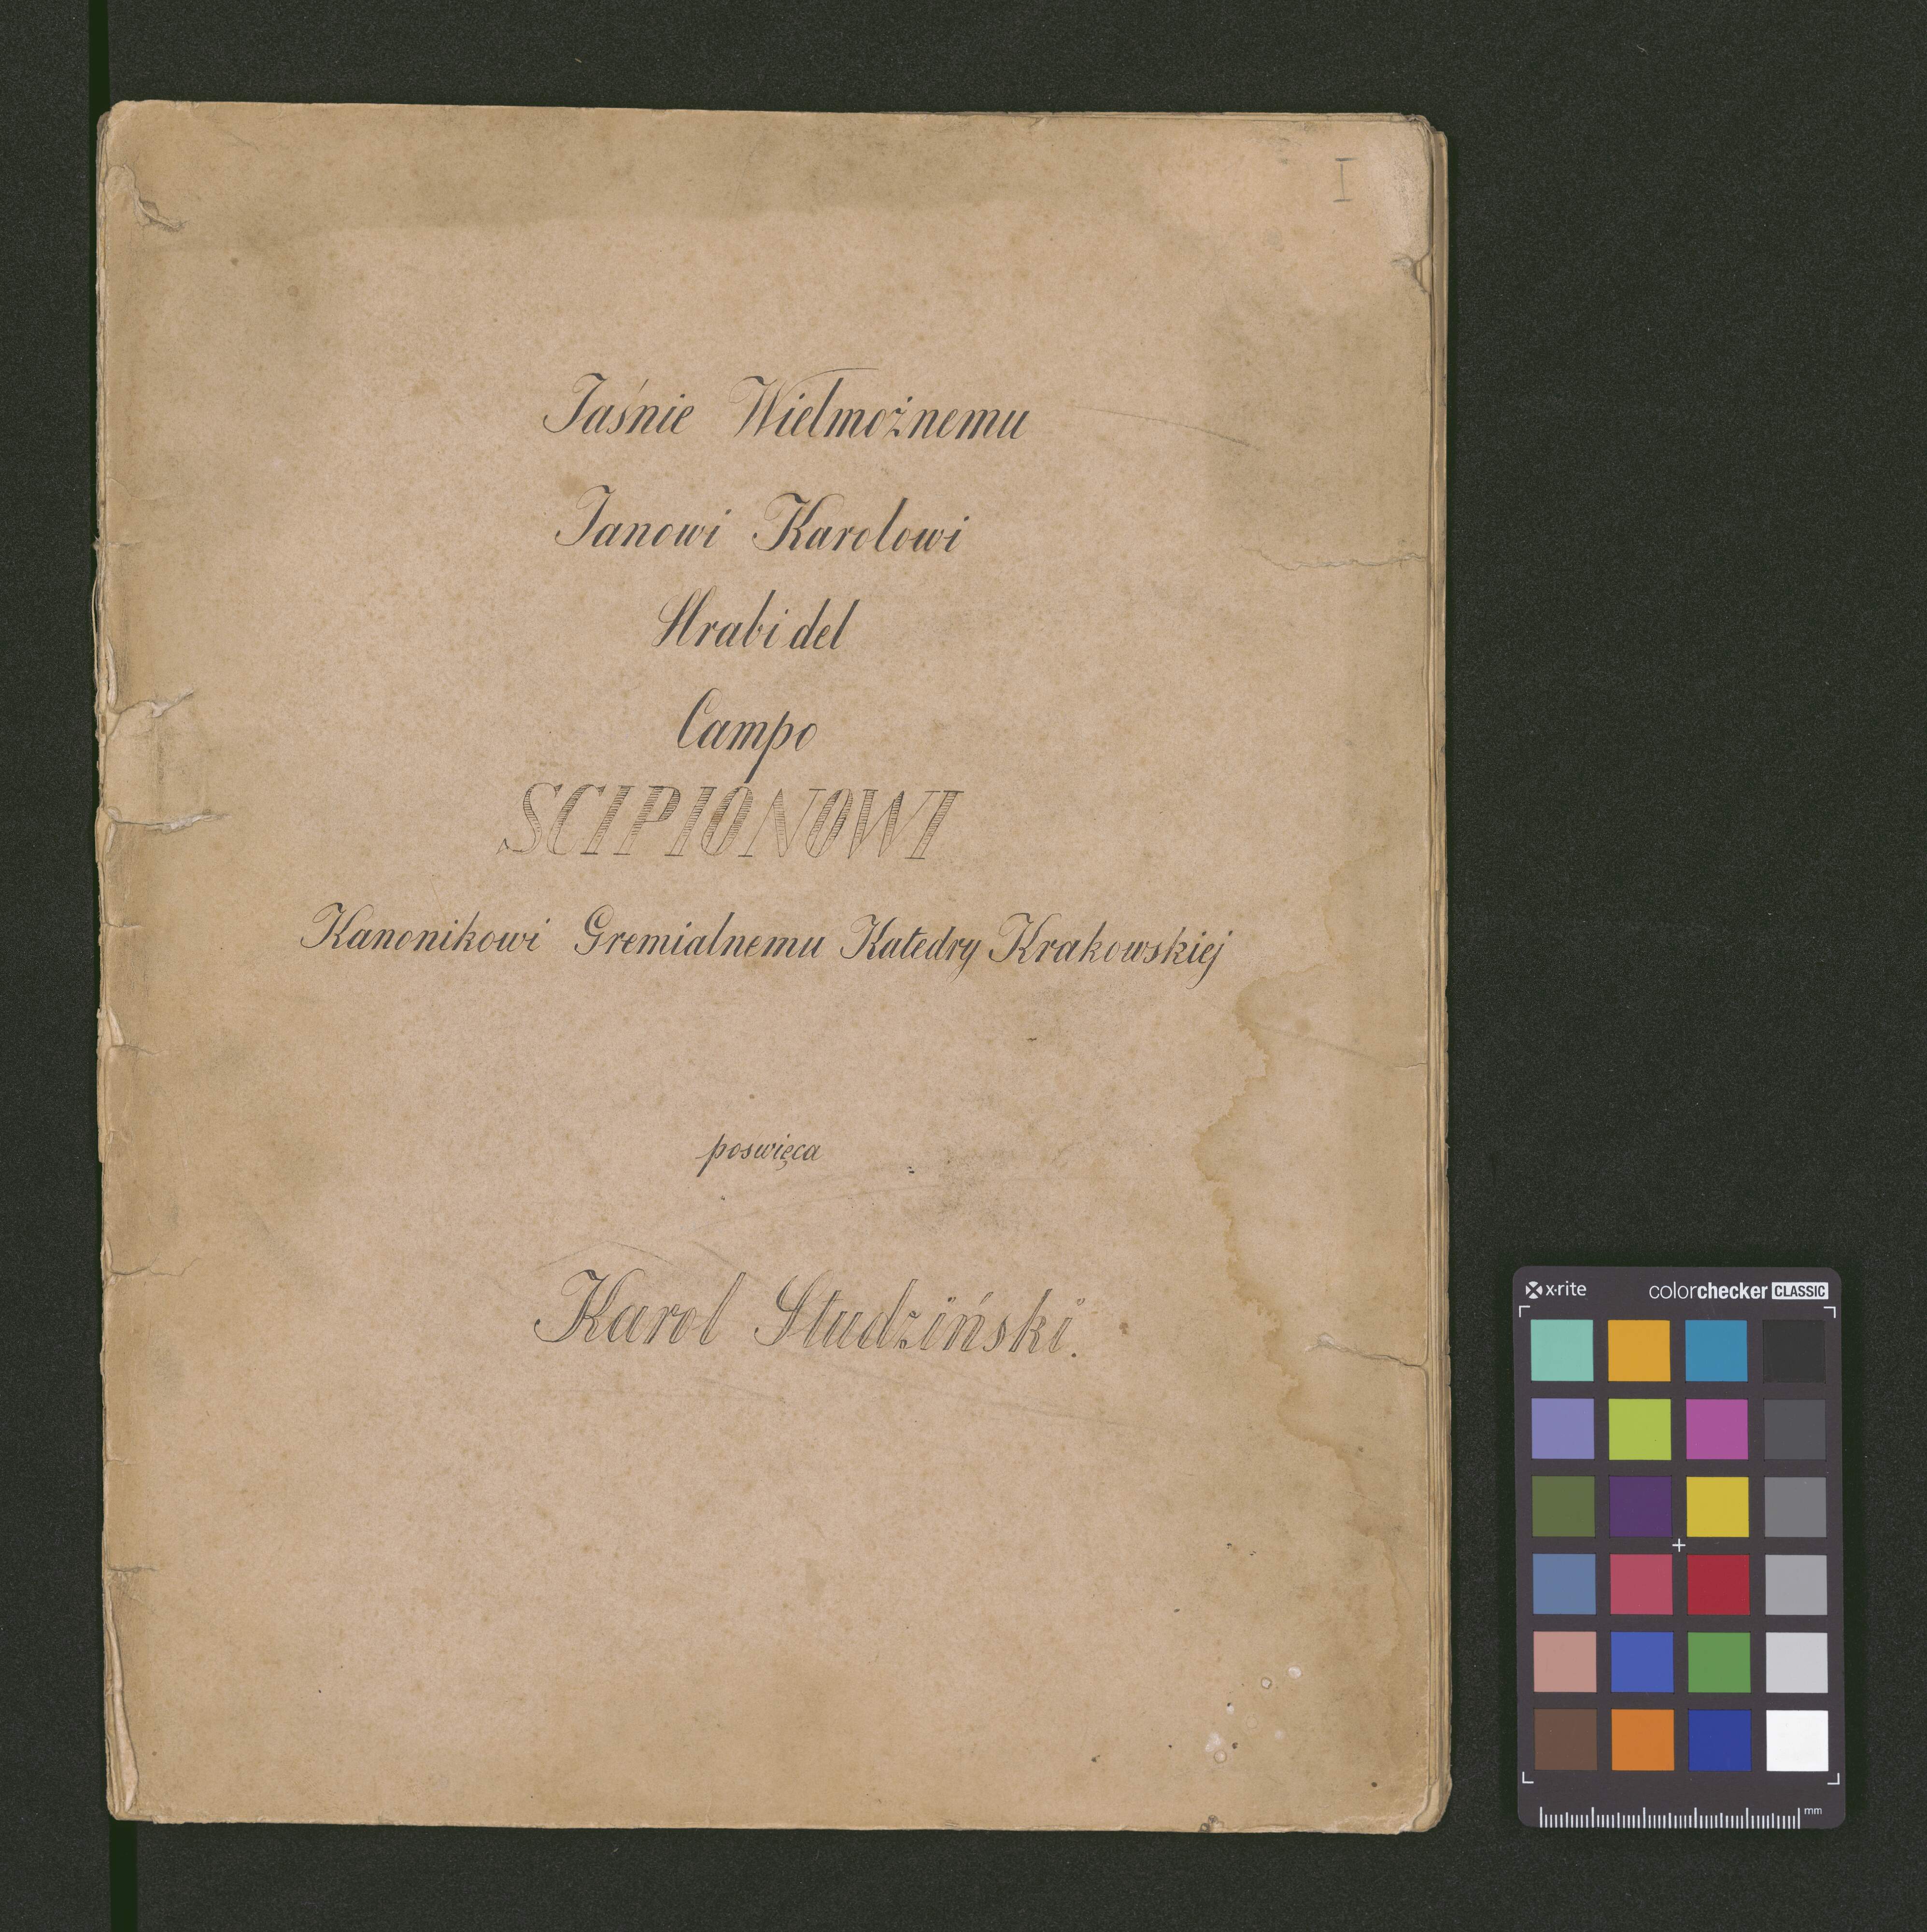 I
Jaśnie Wielmożnemu
Janowi Karolowi
Hrabi del
Campo
SCIPIONOWI
Kanonikowi Gremialnemu Katedry Krakowskiej
poswięca
Karol Studziński.
x·rite colorchecker CLASSIC
mm